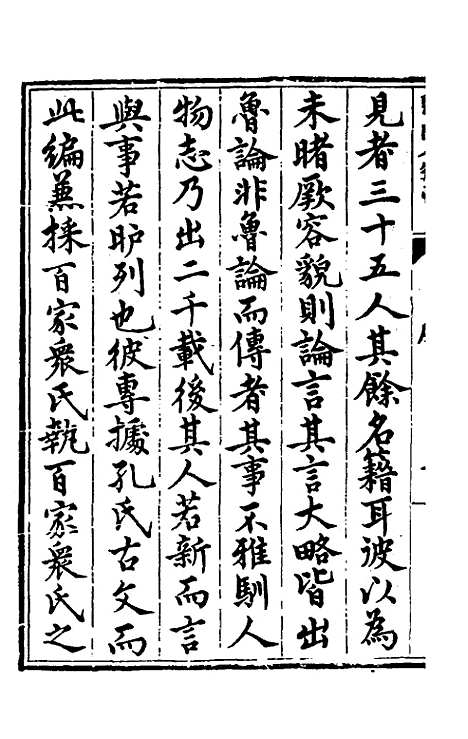 見者三十五人其餘名籍耳彼以為
未睹厥容貌則論言其言大略皆出
魯論非魯論而傳者其事不雅馴人
物志乃出二千載後其人若新而言
與事若昈列也彼專據孔氏古文而
此編蒐採百家衆氏執百家衆氏之